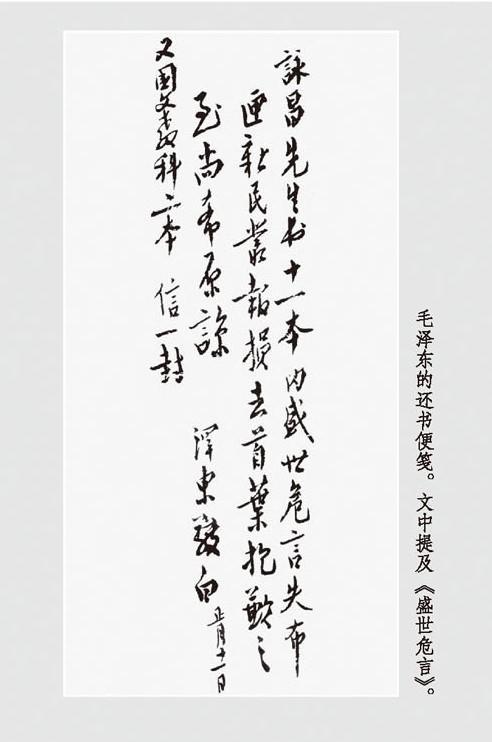 毛泽东的还书便笺。文中提及《盛世危言》。
詠昌先生书十一本内盛世危言失布
匣新民叢報損去首葉抱歉之
至尚希原諒 澤東敬白 正月十一日
又國文教科二本 信一封